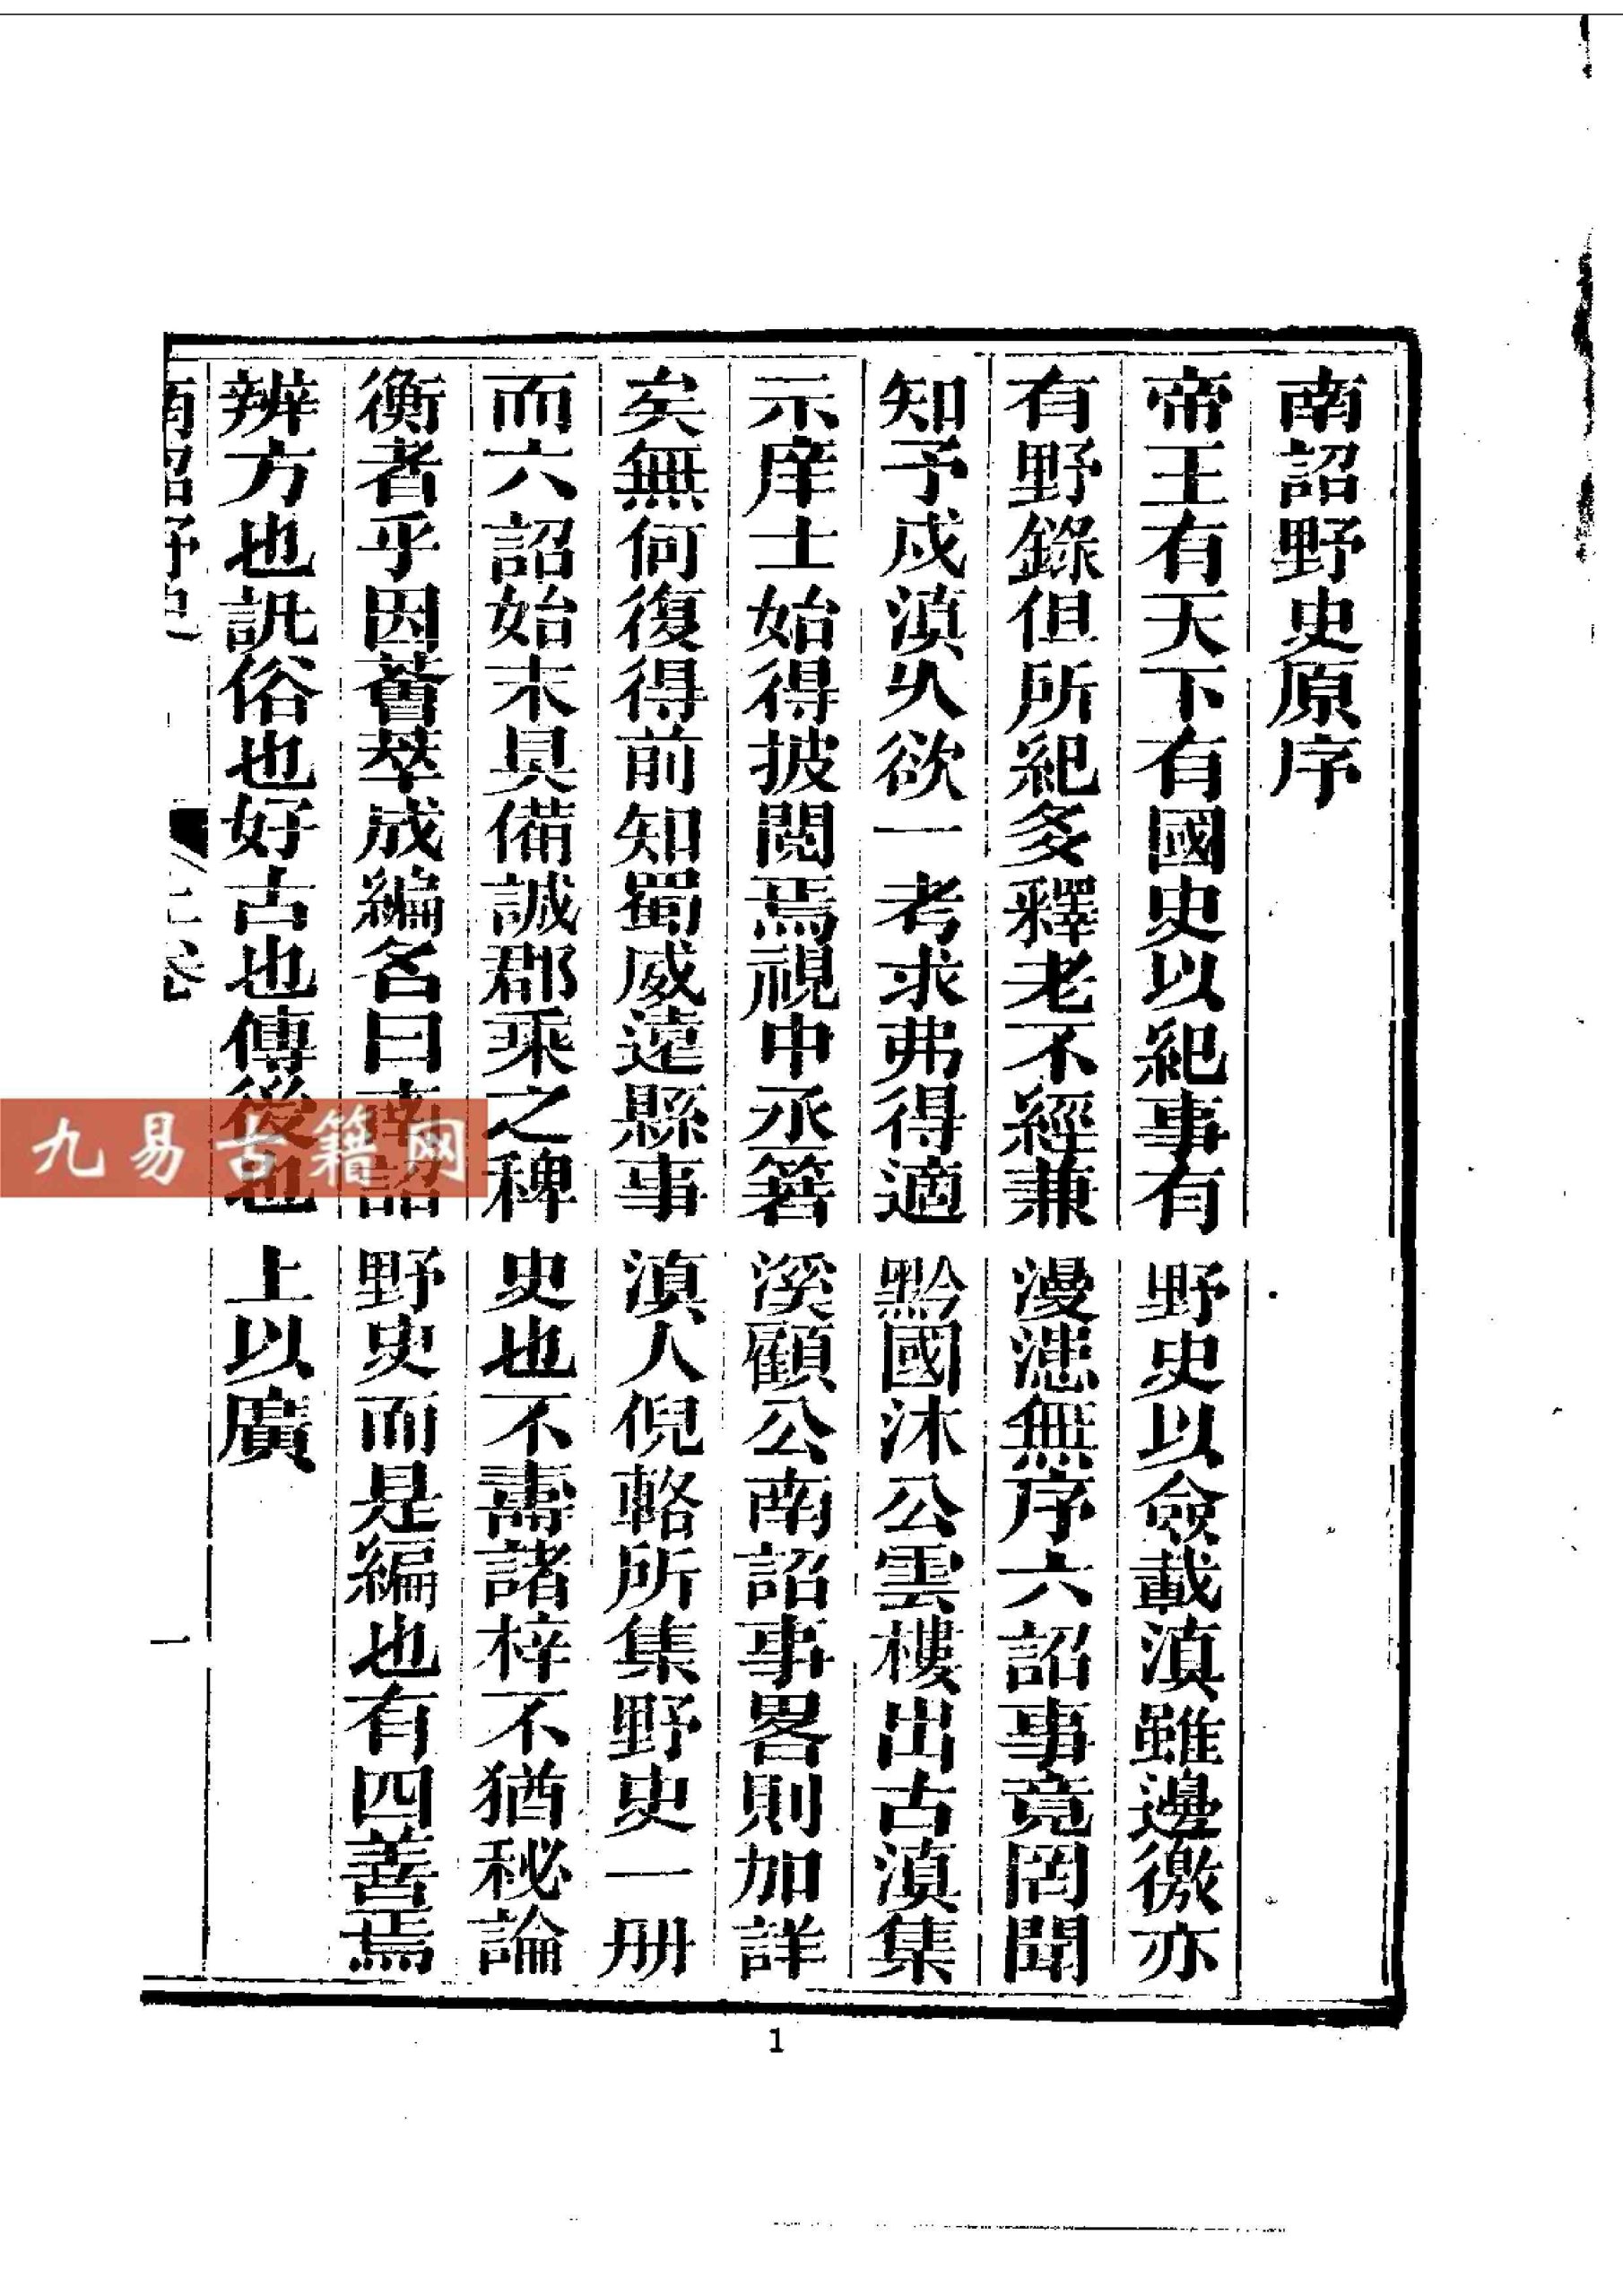 南詔野史原序
帝王有天下有國史以紀事有野史以僉載滇雖邊徼亦
有野錄但所紀多釋老不經兼漫漶無序六詔事竟罔聞
知予戍滇久欲一考求弗得適黔國沐公雲樓出古滇集
示庠士始得披閱焉視中丞箬溪顧公南詔事畧則加詳
矣無何復得前知蜀威遠縣事滇人倪輅所集野史一册
而六詔始末具備誠郡乘之稗史也不壽諸梓不猶秘論
衡者乎因薈萃成編名曰南詔野史而是編也有四善焉
辨方也訊俗也好古也傳後也上以廣
南詔野史
上卷
一
九易古籍网
1